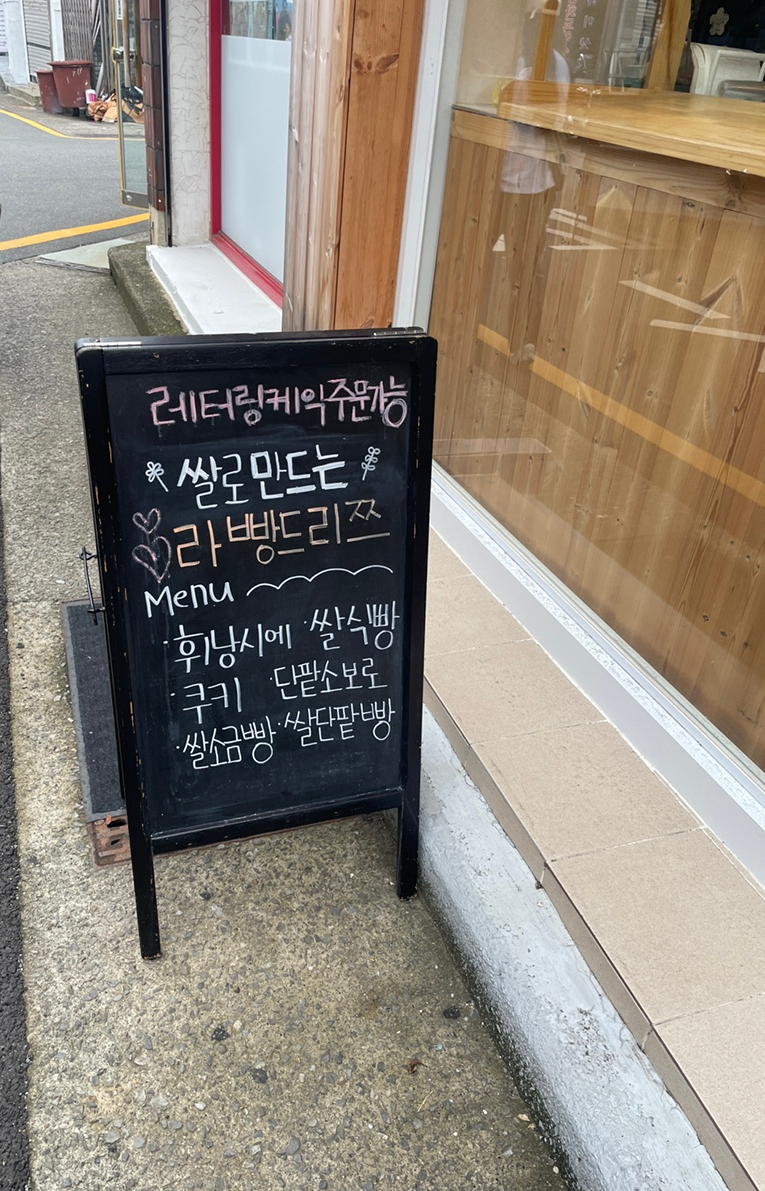 레터링케익주문가능
쌀로만드는
라빵드리쯔
Menu
·휘낭시에 ·쌀식빵
·쿠키 ·단팥소보로
·쌀소금빵 ·쌀단팥빵